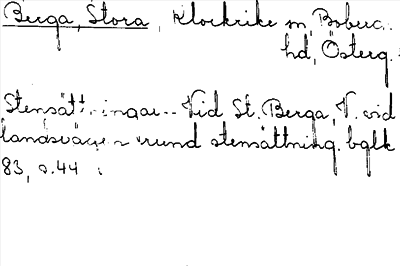 Berga, Stora, Klockrike sn, Boberg
hd, Österg.
Stensättningar. - Vid St. Berga, V. vid
landsvägen rund stensättning. bglk
83, s. 44